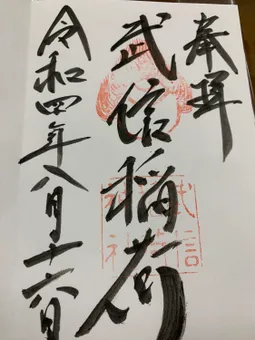 奉拝
武信稲荷
令和四年八月十六日
武信
神社